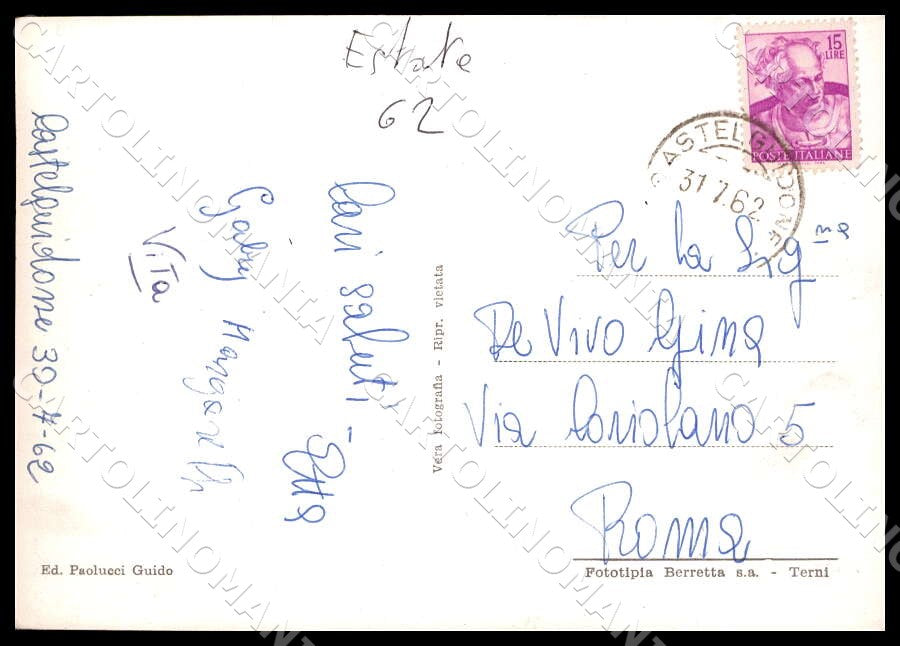 Estate
62
15
LIRE
POSTE ITALIANE
CASTELGUIDONE
31.7.62
Castelguidone 30-7-62
Cari saluti -
Gaby
Vita
Per la Sig.na
De Vivo Gina
Via Coriolano 5
Roma
Vera fotografia - Ripr. vietata
Ed. Paolucci Guido
Fototipia Berretta s.a. - Terni
CARTOLINOMANIA